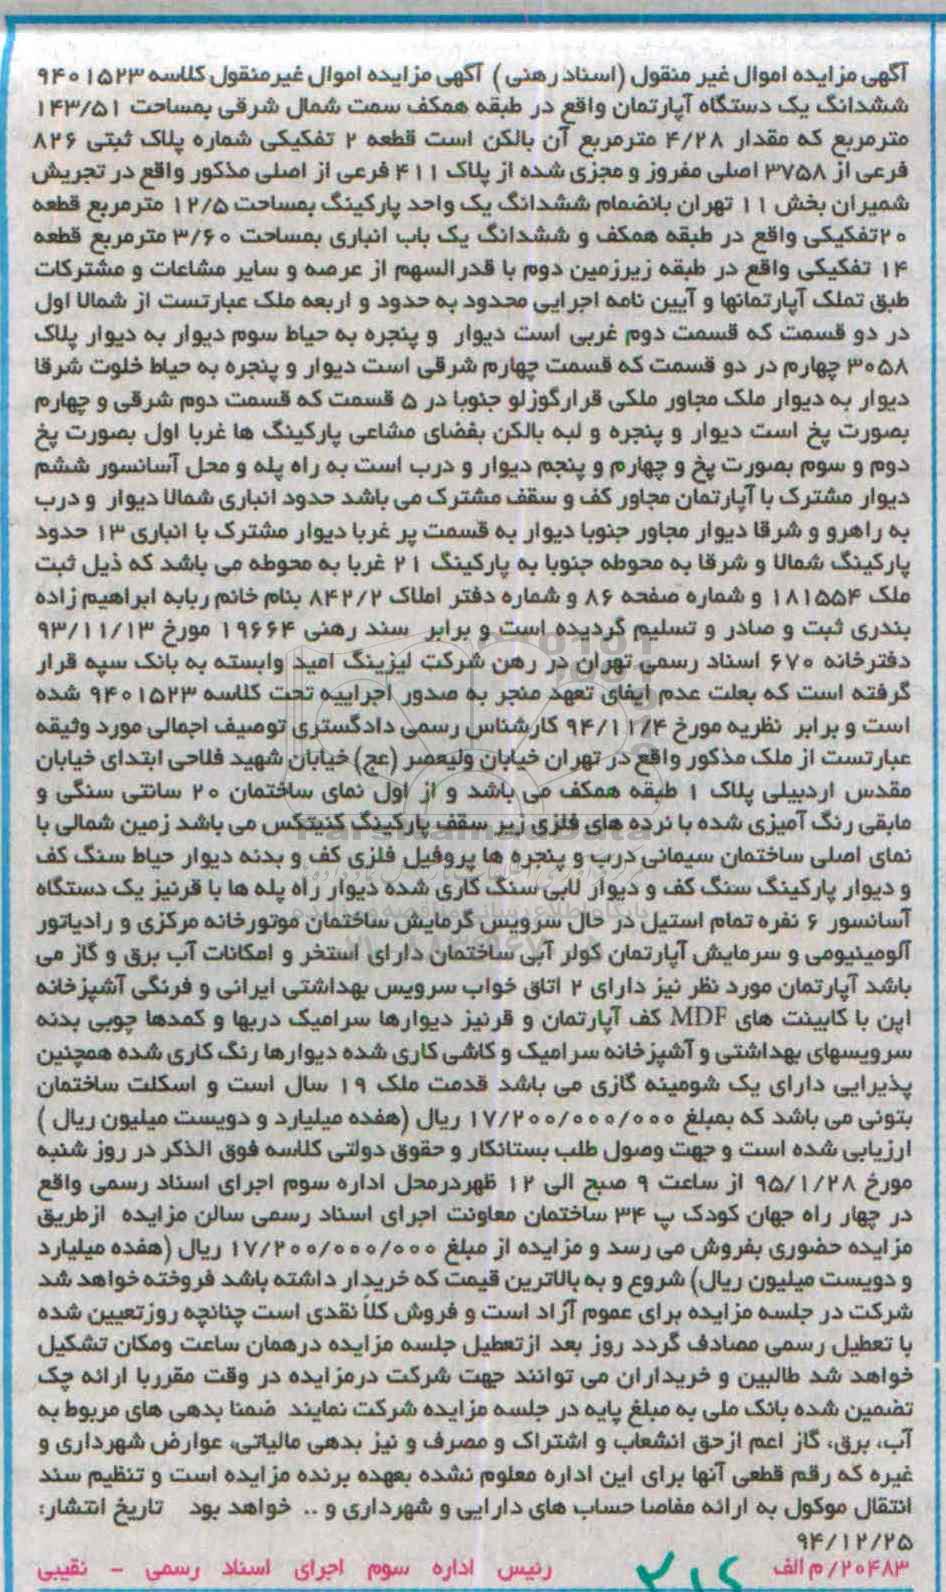 آگهی مزایده اموال غیر منقول (اسناد رهنی) آگهی مزایده اموال غیرمنقول کلاسه ۹۴۰۱۵۲۳
ششدانگ یک دستگاه آپارتمان واقع در طبقه همکف سمت شمال شرقی بمساحت ۱۴۳/۵۱
مترمربع که مقدار ۴/۲۸ مترمربع آن بالکن است قطعه ۲ تفکیکی شماره پلاک ثبتی ۸۲۶
فرعی از ۳۷۵۸ اصلی مفروز و مجزی شده از پلاک ۴۱۱ فرعی از اصلی مذکور واقع در تجریش
شمیران بخش ۱۱ تهران بانضمام ششدانگ یک واحد پارکینگ بمساحت ۱۲/۵ مترمربع قطعه
۲۰تفکیکی واقع در طبقه همکف و ششدانگ یک باب انباری بمساحت ۳/۶۰ مترمربع قطعه
۱۴ تفکیکی واقع در طبقه زیرزمین دوم با قدرالسهم از عرصه و سایر مشاعات و مشترکات
طبق تملک آپارتمانها و آیین نامه اجرایی محدود به حدود و اربعه ملک عبارتست از شمالا اول
در دو قسمت که قسمت دوم غربی است دیوار و پنجره به حیاط سوم دیوار به دیوار پلاک
۳۰۵۸ چهارم در دو قسمت که قسمت چهارم شرقی است دیوار و پنجره به حیاط خلوت شرقا
دیوار به دیوار ملک مجاور ملکی قرارگوزلو جنوبا در ۵ قسمت که قسمت دوم شرقی و چهارم
بصورت پخ است دیوار و پنجره و لبه بالکن بفضای مشاعی پارکینگ ها غربا اول بصورت پخ
دوم و سوم بصورت پخ و چهارم و پنجم دیوار و درب است به راه پله و محل آسانسور ششم
دیوار مشترک با آپارتمان مجاور کف و سقف مشترک می باشد حدود انباری شمالا دیوار و درب
به راهرو و شرقا دیوار مجاور جنوبا دیوار به قسمت پر غربا دیوار مشترک با انباری ۱۳ حدود
پارکینگ شمالا و شرقا به محوطه جنوبا به پارکینگ ۲۱ غربا به محوطه می باشد که ذیل ثبت
ملک ۱۸۱۵۵۴ و شماره صفحه ۸۶ و شماره دفتر املاک ۸۴۲/۲ بنام خانم ربابه ابراهیم زاده
بندری ثبت و صادر و تسلیم گردیده است و برابر سند رهنی ۱۹۶۶۴ مورخ ۹۳/۱۱/۱۳
دفترخانه ۶۷۰ اسناد رسمی تهران در رهن شرکت لیزینگ امید وابسته به بانک سپه قرار
گرفته است که بعلت عدم ایفای تعهد منجر به صدور اجراییه تحت کلاسه ۹۴۰۱۵۲۳ شده
است و برابر نظریه مورخ ۹۴/۱۱/۴ کارشناس رسمی دادگستری توصیف اجمالی مورد وثیقه
عبارتست از ملک مذکور واقع در تهران خیابان ولیعصر (عج) خیابان شهید فلاحی ابتدای خیابان
مقدس اردبیلی پلاک ۱ طبقه همکف می باشد و از اول نمای ساختمان ۲۰ سانتی سنگی و
مابقی رنگ آمیزی شده با نرده های فلزی زیر سقف پارکینگ کنیتکس می باشد زمین شمالی با
نمای اصلی ساختمان سیمانی درب و پنجره ها پروفیل فلزی کف و بدنه دیوار حیاط سنگ کف
و دیوار پارکینگ سنگ کف و دیوار لابی سنگ کاری شده دیوار راه پله ها با قرنیز یک دستگاه
آسانسور ۶ نفره تمام استیل در حال سرویس گرمایش ساختمان موتورخانه مرکزی و رادیاتور
آلومینیومی و سرمایش آپارتمان کولر آبی ساختمان دارای استخر و امکانات آب برق و گاز می
باشد آپارتمان مورد نظر نیز دارای ۲ اتاق خواب سرویس بهداشتی ایرانی و فرنگی آشپزخانه
اپن با کابینت های MDF کف آپارتمان و قرنیز دیوارها سرامیک دربها و کمدها چوبی بدنه
سرویسهای بهداشتی و آشپزخانه سرامیک و کاشی کاری شده دیوارها رنگ کاری شده همچنین
پذیرایی دارای یک شومینه گازی می باشد قدمت ملک ۱۹ سال است و اسکلت ساختمان
بتونی می باشد که بمبلغ ۱۷/۲۰۰/۰۰۰/۰۰۰ ریال (هفده میلیارد و دویست میلیون ریال )
ارزیابی شده است و جهت وصول طلب بستانکار و حقوق دولتی کلاسه فوق الذکر در روز شنبه
مورخ ۹۵/۱/۲۸ از ساعت ۹ صبح الی ۱۲ ظهردرمحل اداره سوم اجرای اسناد رسمی واقع
در چهار راه جهان کودک پ ۳۴ ساختمان معاونت اجرای اسناد رسمی سالن مزایده ازطریق
مزایده حضوری بفروش می رسد و مزایده از مبلغ ۱۷/۲۰۰/۰۰۰/۰۰۰ ریال (هفده میلیارد
و دویست میلیون ریال) شروع و به بالاترین قیمت که خریدار داشته باشد فروخته خواهد شد
شرکت در جلسه مزایده برای عموم آزاد است و فروش کلاً نقدی است چنانچه روزتعیین شده
با تعطیل رسمی مصادف گردد روز بعد ازتعطیل جلسه مزایده درهمان ساعت ومکان تشکیل
خواهد شد طالبین و خریداران می توانند جهت شرکت درمزایده در وقت مقرربا ارائه چک
تضمین شده بانک ملی به مبلغ پایه در جلسه مزایده شرکت نمایند ضمنا بدهی های مربوط به
آب، برق، گاز اعم ازحق انشعاب و اشتراک و مصرف و نیز بدهی مالیاتی، عوارض شهرداری و
غیره که رقم قطعی آنها برای این اداره معلوم نشده بعهده برنده مزایده است و تنظیم سند
انتقال موکول به ارائه مفاصا حساب های دارایی و شهرداری و .. خواهد بود تاریخ انتشار:
۹۴/۱۲/۲۵
۲۰۴۸۳/م الف رئیس اداره سوم اجرای اسناد رسمی - نقیبی